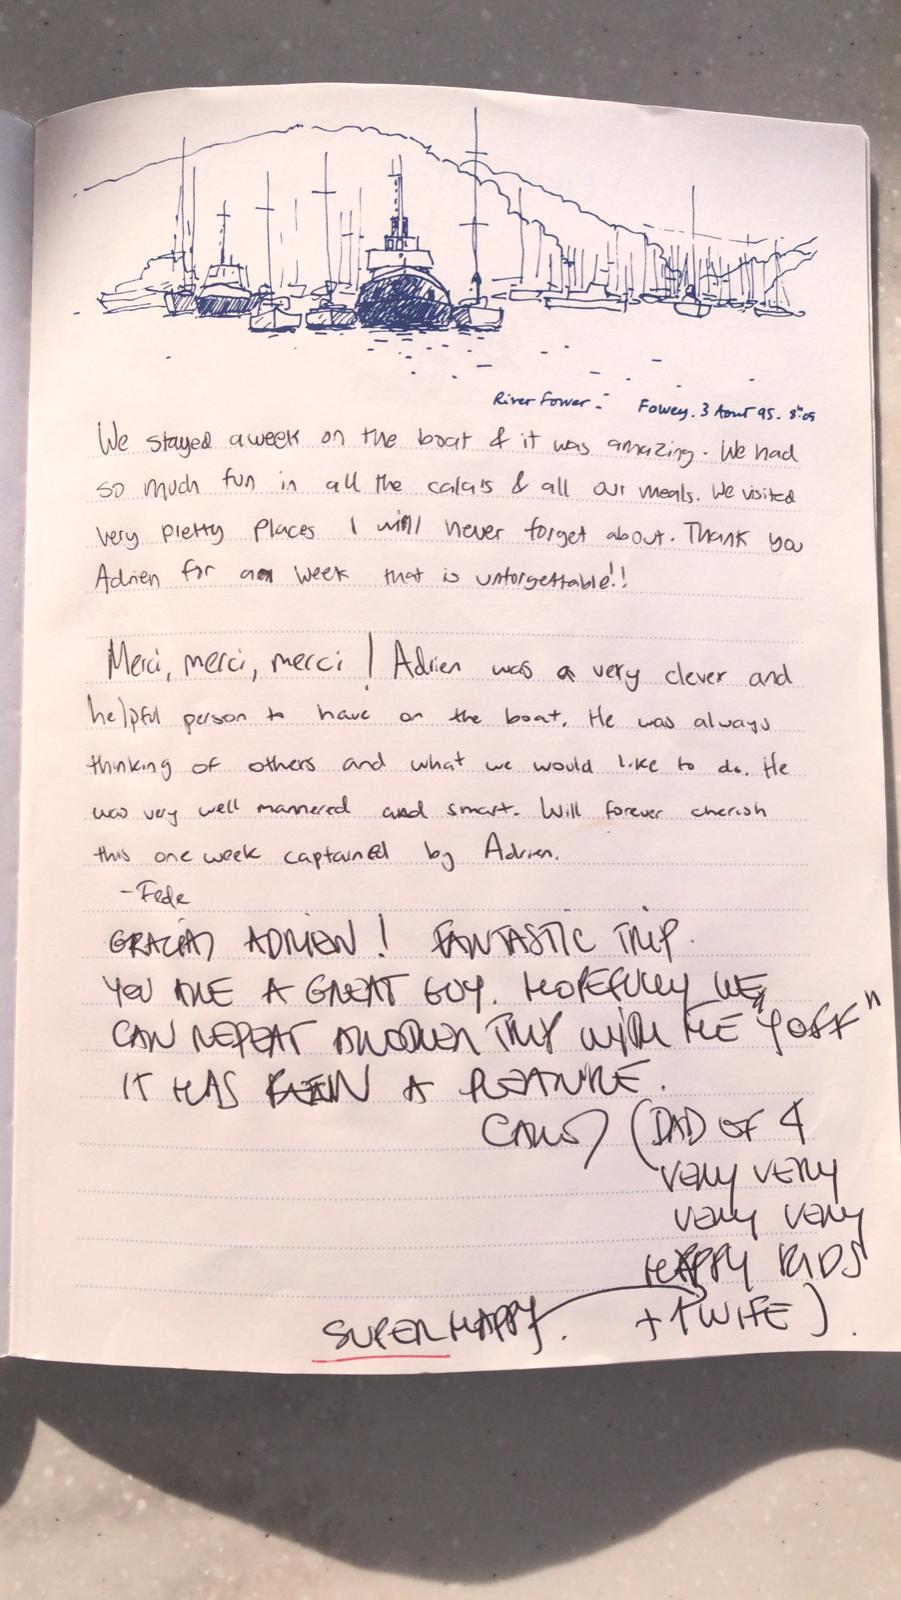 River Fower - Fowey. 3 Aout 95. 8h05
We stayed a week on the boat & it was amazing. We had
so much fun in all the calas & all our meals. We visited
very pretty places I will never forget about. Thank you
Adrien for a week that is unforgettable!!
Merci, merci, merci! Adrien was a very clever and
helpful person to have on the boat. He was always
thinking of others and what we would like to do. He
was very well mannered and smart. Will forever cherish
this one week captained by Adrien.
-Fede
GRACIAS ADRIEN! FANTASTIC TRIP.
YOU ARE A GREAT GUY. HOPEFULLY WE
CAN REPEAT ANOTHER TRIP WITH THE
IT HAS BEEN A PLEASURE.
CARLOS (DAD OF 4
VERY VERY
VERY VERY
HAPPY KIDS
SUPER HAPPY. + 1 WIFE).